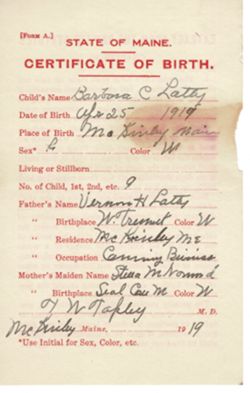 [FORM A.]
STATE OF MAINE.
CERTIFICATE OF BIRTH.
Child's Name Barbara C Latty
Date of Birth Apr 25 1919
Place of Birth McKinley Main
Sex* Color W
Living or Stillborn
No. of Child, 1st, 2nd, etc. 9
Father's Name Vernon H Latty
" Birthplace W. Tremont Color W
" Residence McKinley Me
" Occupation Canning Business
Mother's Maiden Name M
" Birthplace Seal Cove M Color W
T W Tapley M. D.
McKinley Maine, 1919
*Use Initial for Sex, Color, etc.